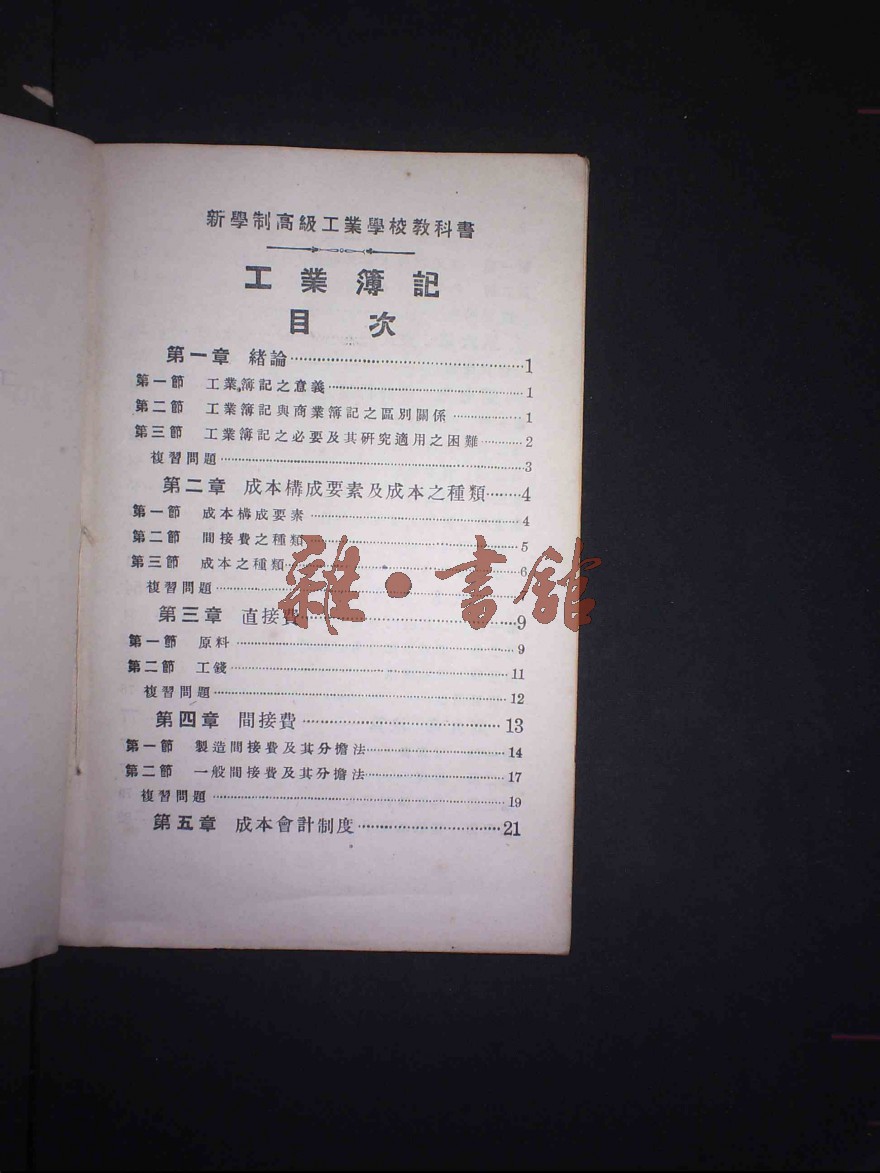 新學制高級工業學校教科書
工業簿記
目次
第一章 緒論……1
第一節 工業簿記之意義……1
第二節 工業簿記與商業簿記之區別關係……1
第三節 工業簿記之必要及其研究適用之困難……2
複習問題……3
第二章 成本構成要素及成本之種類……4
第一節 成本構成要素……4
第二節 間接費之種類……5
第三節 成本之種類……6
複習問題……
第三章 直接費……9
第一節 原料……9
第二節 工錢……11
複習問題……12
第四章 間接費……13
第一節 製造間接費及其分擔法……14
第二節 一般間接費及其分擔法……17
複習問題……19
第五章 成本會計制度……21
雜·書舘